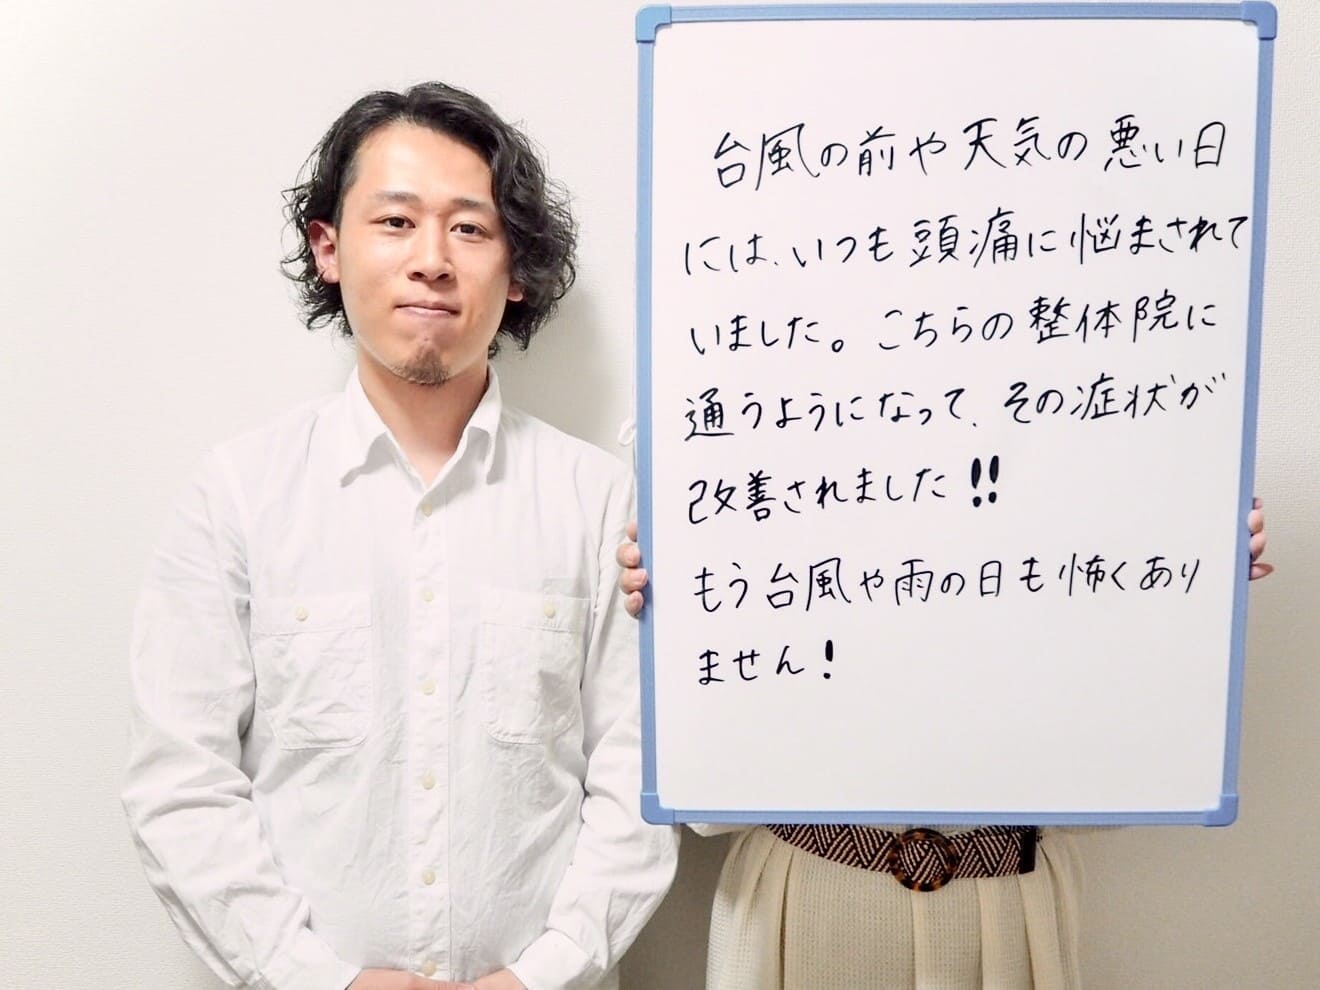 台風の前や天気の悪い日
には、いつも頭痛に悩まされて
いました。こちらの整体院に
通うようになって、その症状が
改善されました!!
もう台風や雨の日も怖くあり
ません!